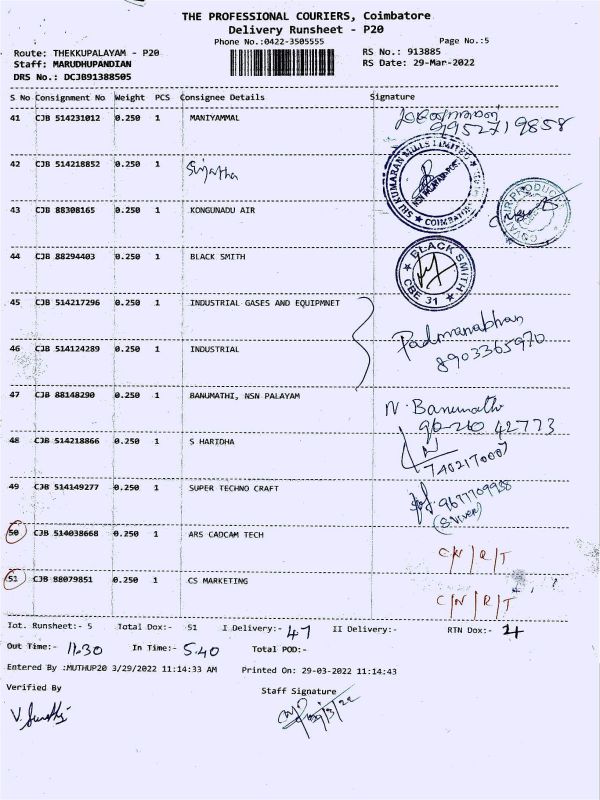 THE PROFESSIONAL COURIERS, Coimbatore
Delivery Runsheet - P20
Phone No.:0422-3505555
Page No.:5
Route: THEKKUPALAYAM - P20
RS No.: 913885
Staff: MARUDHUPANDIAN
RS Date: 29-Mar-2022
DRS No.: DCJB91388505
S No Consignment No Weight PCS Consignee Details Signature
41 CJB 514231012 0.250 1 MANIYAMMAL
9952719858
42 CJB 514218852 0.250 1 Sujatha
SRI KUMARAN MILLS LIMITED
COIMBATORE
43 CJB 88308165 0.250 1 KONGUNADU AIR
44 CJB 88294403 0.250 1 BLACK SMITH
BLACK SMITH
CBE 31
45 CJB 514217296 0.250 1 INDUSTRIAL GASES AND EQUIPMNET
46 CJB 514124289 0.250 1 INDUSTRIAL
Padmanabhan
8903365970
47 CJB 88148290 0.250 1 BANUMATHI, NSN PALAYAM
N. Banumathi
42773
48 CJB 514218866 0.250 1 S HARIDHA
49 CJB 514149277 0.250 1 SUPER TECHNO CRAFT
50 CJB 514038668 0.250 1 ARS CADCAM TECH
C/N/R/T
51 CJB 88079851 0.250 1 CS MARKETING
C/N/R/T
Tot. Runsheet:- 5 Total Dox:- 51 I Delivery:- 47 II Delivery:- RTN Dox:- 4
Out Time:- 11.30 In Time:- 5.40 Total POD:-
Entered By :MUTHUP20 3/29/2022 11:14:33 AM Printed On: 29-03-2022 11:14:43
Verified By Staff Signature